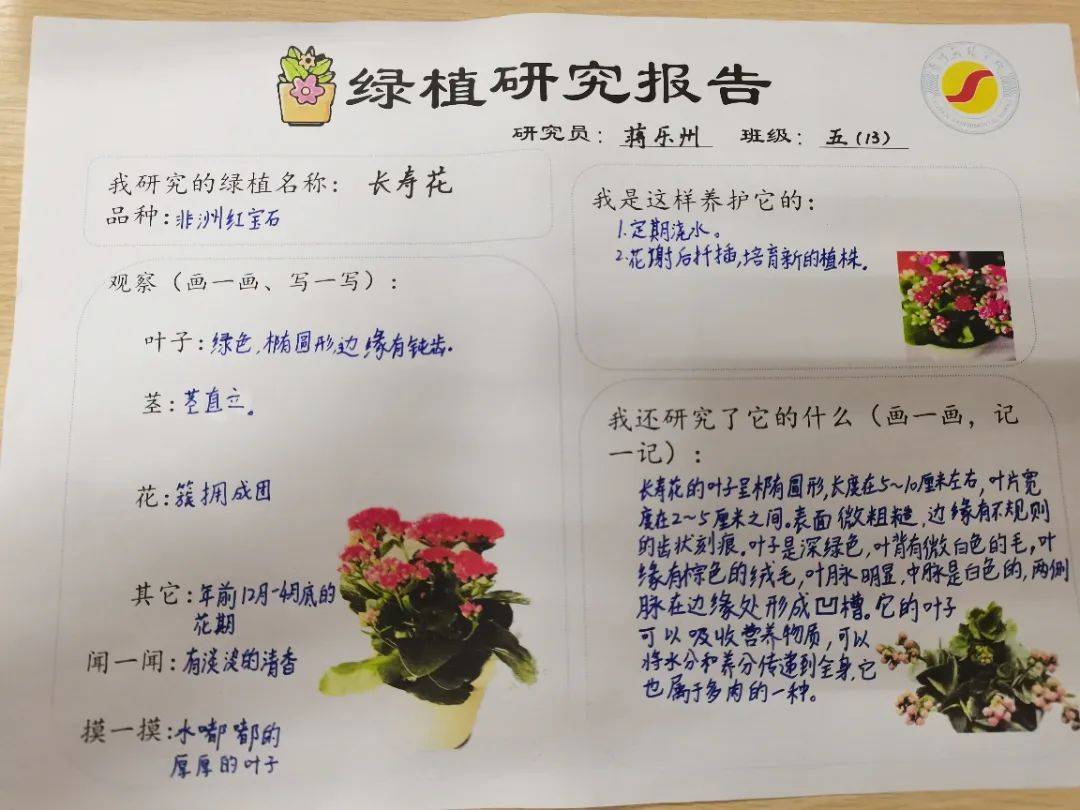 绿植研究报告
研究员：蒋乐州 班级：五（13）
我研究的绿植名称： 长寿花
品种：非洲红宝石
观察（画一画、写一写）：
叶子：绿色，椭圆形，边缘有钝齿。
茎：茎直立。
花：簇拥成团
其它：年前12月-4月底的
花期
闻一闻：有淡淡的清香
摸一摸：水嘟嘟的
厚厚的叶子
我是这样养护它的：
1.定期浇水。
2.花谢后扦插，培育新的植株。
我还研究了它的什么（画一画，记
一记）：
长寿花的叶子呈椭圆形，长度在5～10厘米左右，叶片宽
度在2～5厘米之间。表面微粗糙，边缘有不规则
的齿状刻痕。叶子是深绿色，叶背有微白色的毛，叶
缘有棕色的绒毛，叶脉明显，中脉是白色的，两侧
脉在边缘处形成凹槽。它的叶子
可以吸收营养物质，可以
将水分和养分传递到全身，它
也属于多肉的一种。